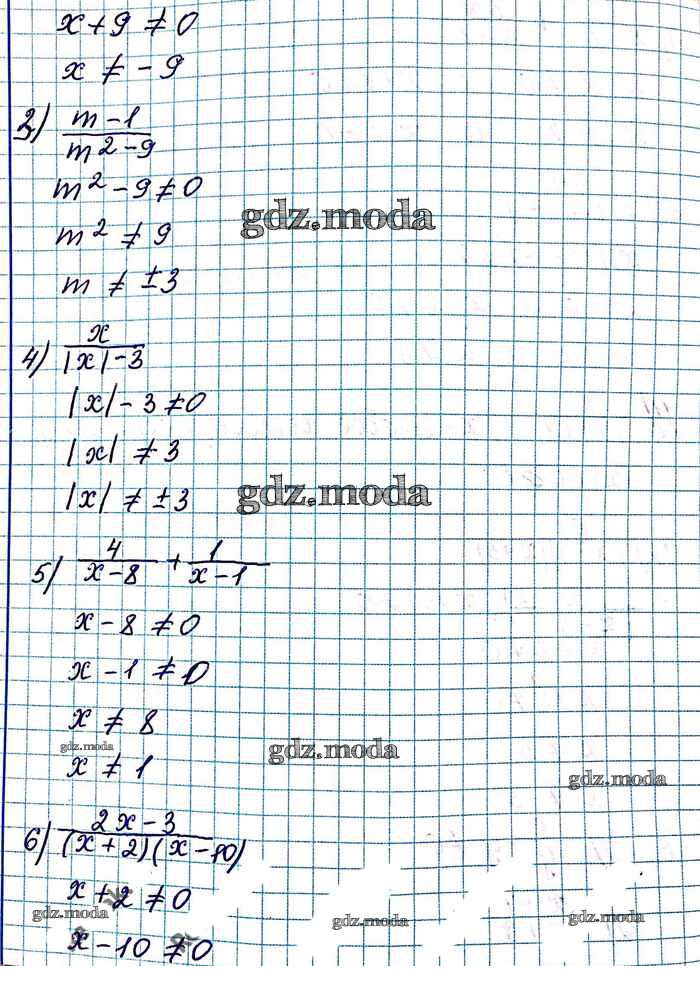 x + 9 ≠ 0
x ≠ - 9
3) m - 1 / m² - 9
m² - 9 ≠ 0
gdz.moda
m² ≠ 9
m ≠ ±3
4) x / |x| - 3
|x| - 3 ≠ 0
|x| ≠ 3
|x| ≠ ±3
gdz.moda
5) 4 / x - 8 + 1 / x - 1
x - 8 ≠ 0
x - 1 ≠ 0
x ≠ 8
gdz.moda
gdz.moda
x ≠ 1
gdz.moda
6) 2x - 3 / (x + 2)(x - 10)
x + 2 ≠ 0
gdz.moda
gdz.moda
gdz.moda
x - 10 ≠ 0